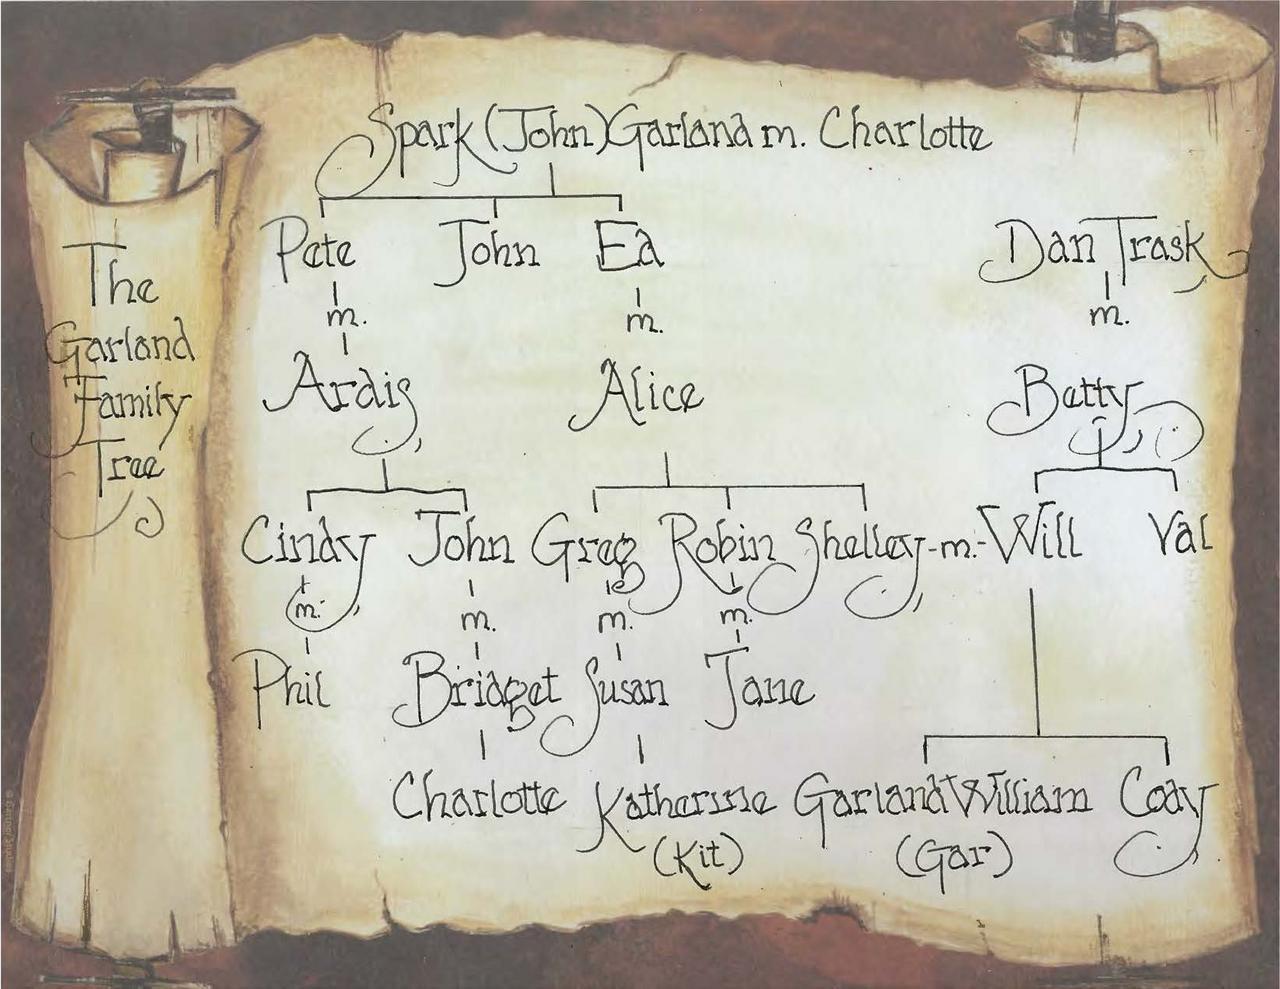 The
Garland
Family
Tree
Spark (John) Garland m. Charlotte
Pete John Ed Dan Trask
m. m. m.
Ardis Alice Betty
Cindy John Greg Robin Shelley -m.- Will Val
m. m. m. m.
Phil Bridget Susan Jane
Charlotte Katherine Garland William Cody
(Kit) (Gar)